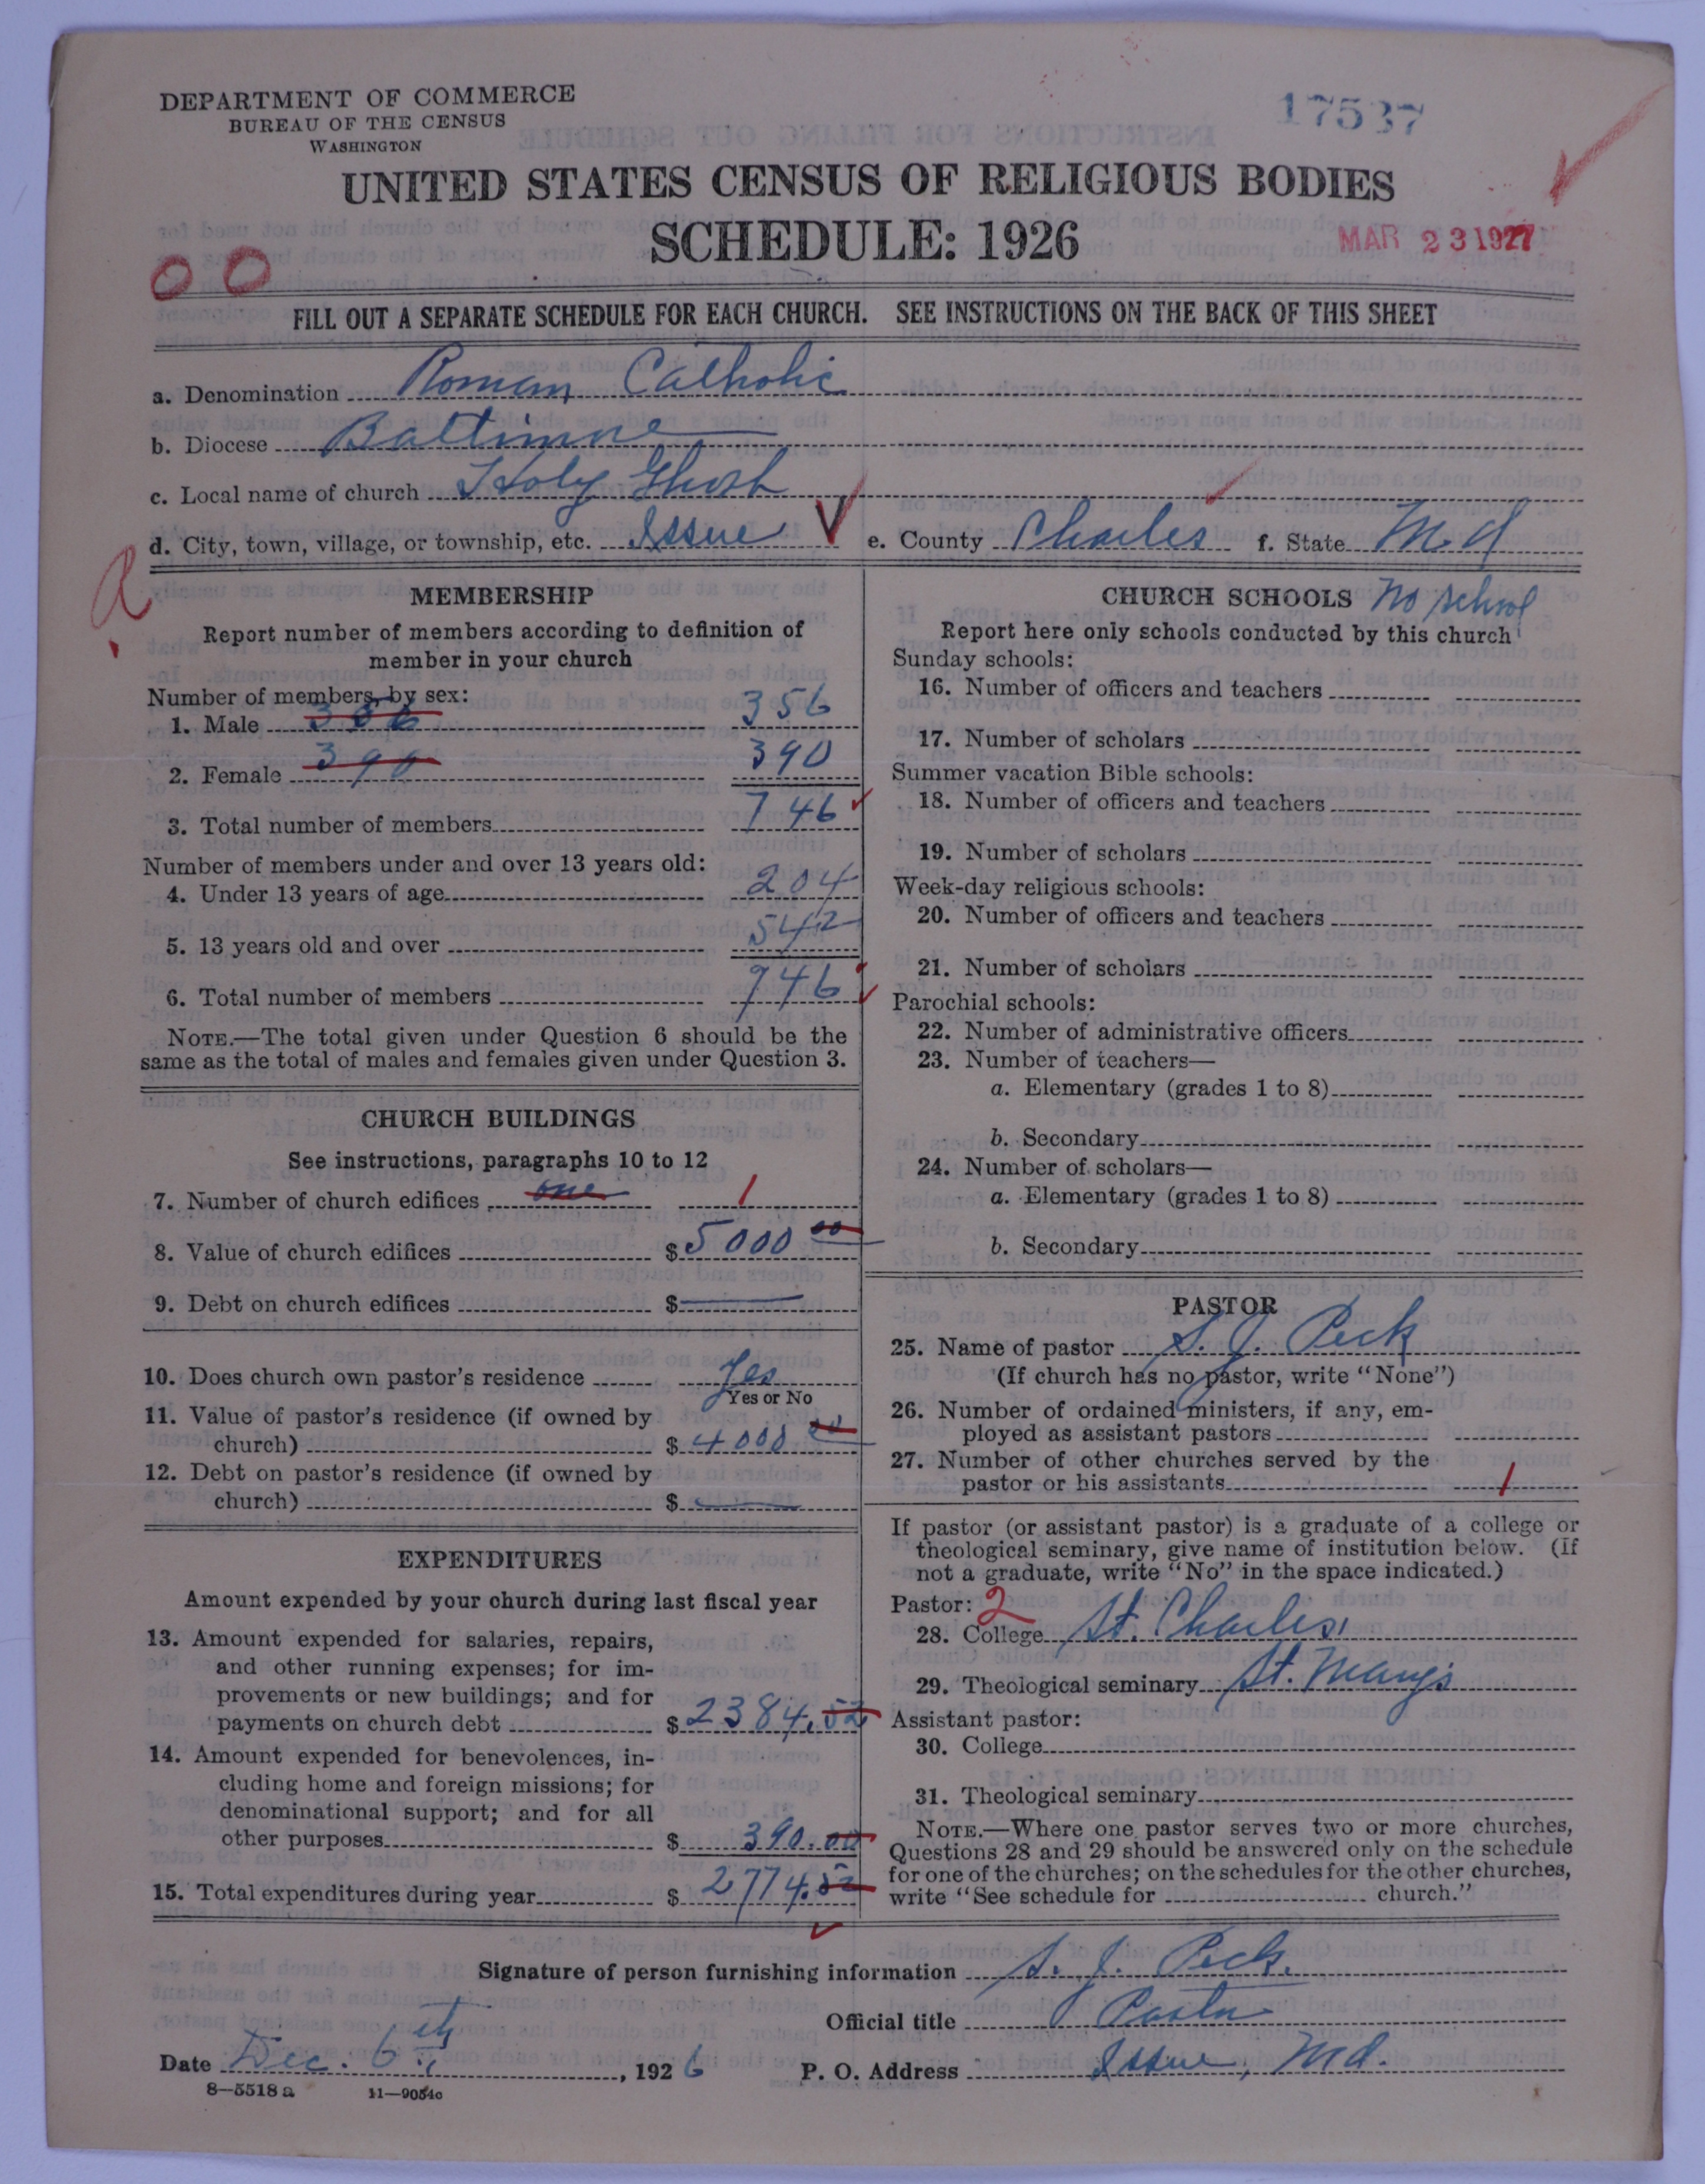 DEPARTMENT OF COMMERCE
BUREAU OF THE CENSUS
WASHINGTON
17537
UNITED STATES CENSUS OF RELIGIOUS BODIES
SCHEDULE: 1926
MAR 23 1927
00
FILL OUT A SEPARATE SCHEDULE FOR EACH CHURCH. SEE INSTRUCTIONS ON THE BACK OF THIS SHEET
a. Denomination Roman Catholic
b. Diocese Baltimore
c. Local name of church Holy Ghost
d. City, town, village, or township, etc. Issue e. County Charles f. State Md
MEMBERSHIP
Report number of members according to definition of
member in your church
Number of members, by sex:
1. Male 356 356
2. Female 390 390
3. Total number of members 746
Number of members under and over 13 years old:
4. Under 13 years of age 204
5. 13 years old and over 542
6. Total number of members 746
NOTE.—The total given under Question 6 should be the
same as the total of males and females given under Question 3.
CHURCH BUILDINGS
See instructions, paragraphs 10 to 12
7. Number of church edifices one 1
8. Value of church edifices $5000 00
9. Debt on church edifices $
10. Does church own pastor's residence Yes
Yes or No
11. Value of pastor's residence (if owned by
church) $4000 00
12. Debt on pastor's residence (if owned by
church) $
EXPENDITURES
Amount expended by your church during last fiscal year
13. Amount expended for salaries, repairs,
and other running expenses; for im-
provements or new buildings; and for
payments on church debt $2384.52
14. Amount expended for benevolences, in-
cluding home and foreign missions; for
denominational support; and for all
other purposes $390.00
15. Total expenditures during year $2774.52
CHURCH SCHOOLS No school
Report here only schools conducted by this church
Sunday schools:
16. Number of officers and teachers
17. Number of scholars
Summer vacation Bible schools:
18. Number of officers and teachers
19. Number of scholars
Week-day religious schools:
20. Number of officers and teachers
21. Number of scholars
Parochial schools:
22. Number of administrative officers
23. Number of teachers—
a. Elementary (grades 1 to 8)
b. Secondary
24. Number of scholars—
a. Elementary (grades 1 to 8)
b. Secondary
PASTOR
25. Name of pastor S. J. Peck
(If church has no pastor, write "None")
26. Number of ordained ministers, if any, em-
ployed as assistant pastors
27. Number of other churches served by the
pastor or his assistants 1
If pastor (or assistant pastor) is a graduate of a college or
theological seminary, give name of institution below. (If
not a graduate, write "No" in the space indicated.)
Pastor: 2
28. College St. Charles
29. Theological seminary St. Mary's
Assistant pastor:
30. College
31. Theological seminary
NOTE.—Where one pastor serves two or more churches,
Questions 28 and 29 should be answered only on the schedule
for one of the churches; on the schedules for the other churches,
write "See schedule for church."
Signature of person furnishing information S. J. Peck.
Official title Pastor
Date Dec. 6th, 1926 P. O. Address Issue, Md.
8—5518 a 11—9054c